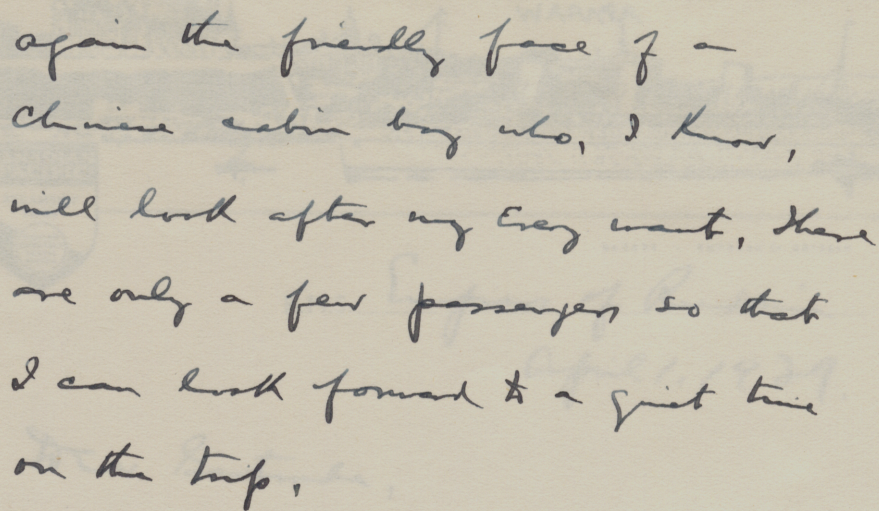 again the friendly face of a
Chinese cabin boy who, I know,
will look after my every want, There
are only a few passengers so that
I can look forward to a quiet time
on the trip.